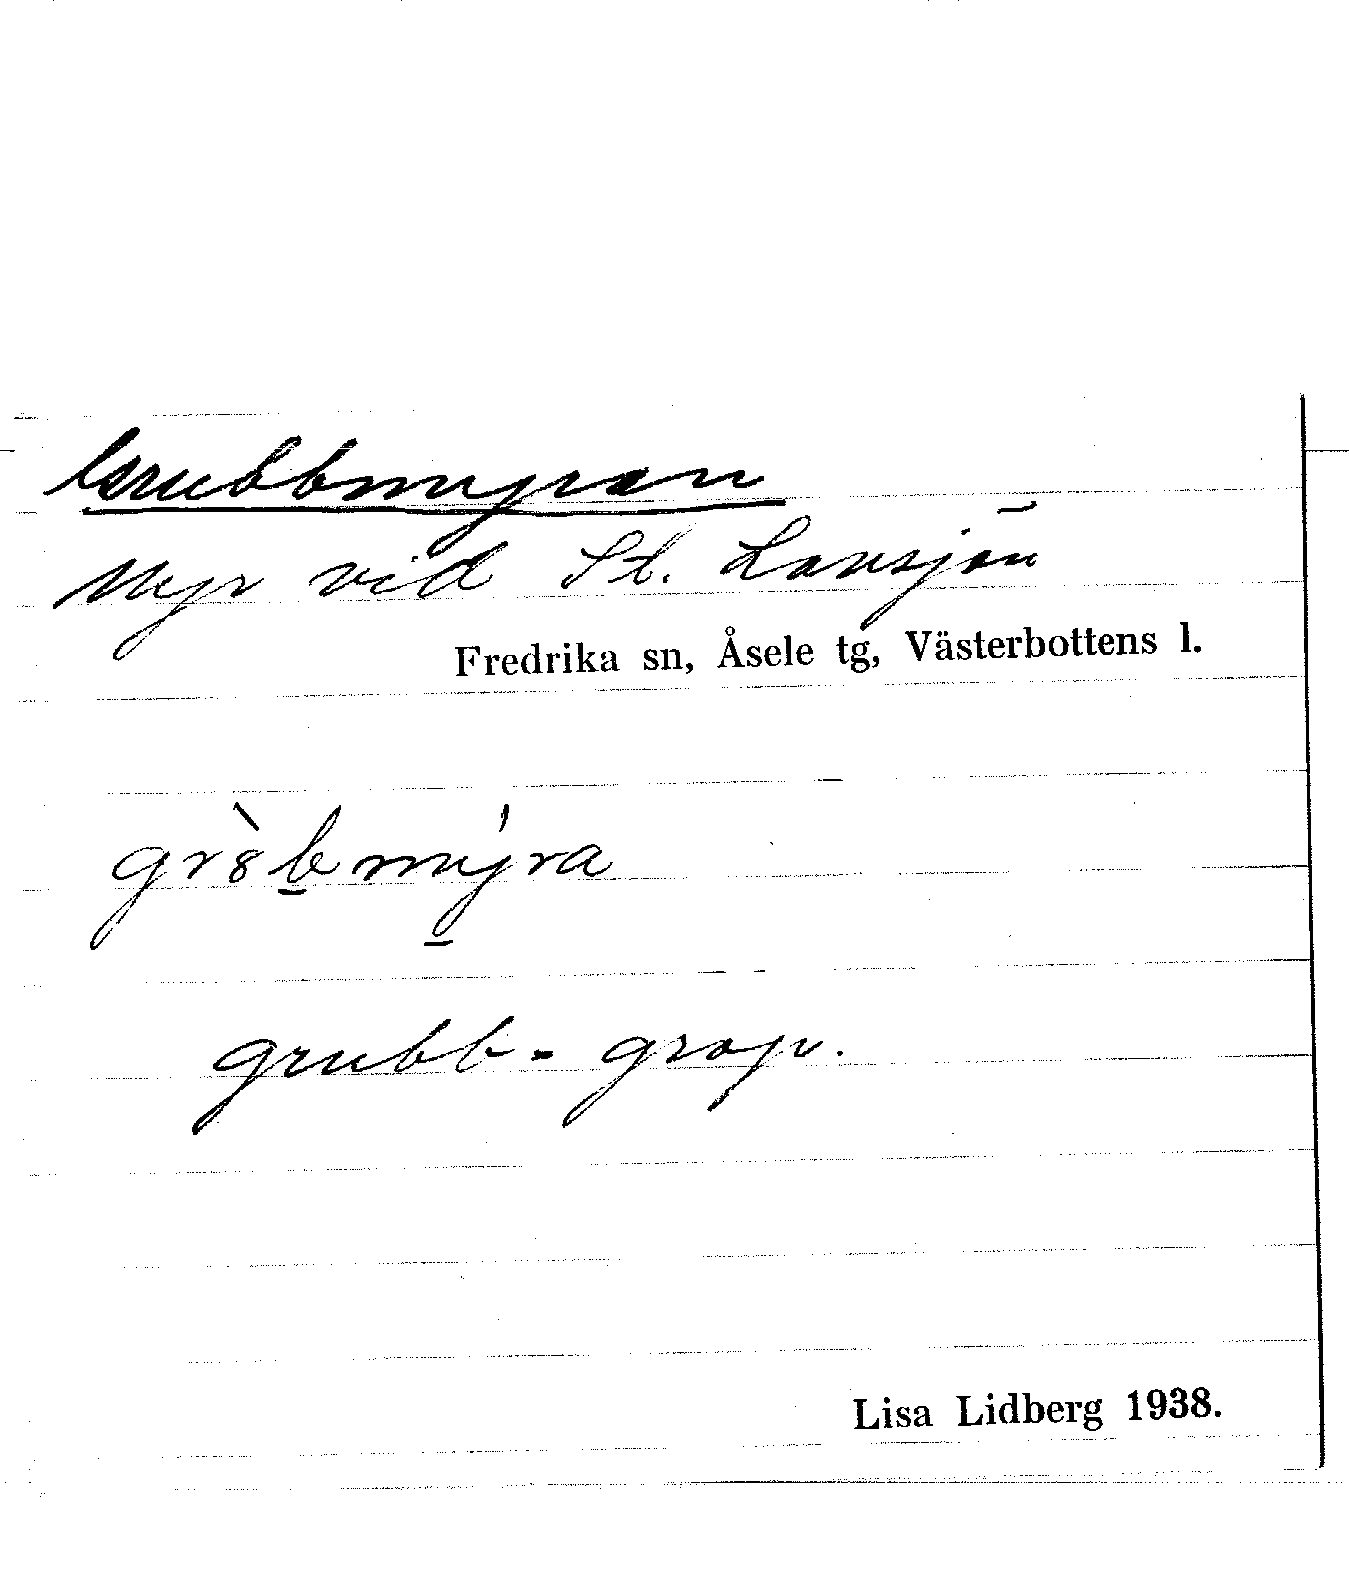 Grubbmyran
Myr vid St. Lavsjön
Fredrika sn, Åsele tg, Västerbottens l.
gr8̀b̲mý̲ra
grubb = grop.
Lisa Lidberg 1938.